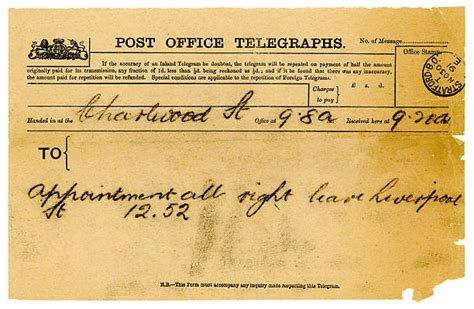 POST OFFICE TELEGRAPHS.
No. of Message
If the accuracy of an Inland Telegram be doubted, the telegram will be repeated on payment of half the amount
originally paid for its transmission, any fraction of 1d. less than ½d. being reckoned as ½d.; and if it be found that there was any inaccuracy,
the amount paid for repetition will be refunded. Special conditions are applicable to the repetition of Foreign Telegrams.
Office Stamp.
Charges to pay
£ s. d.
Handed in at the Charlwood St Office at 9.8a Received here at 9.20a
TO
Appointment all right leave Liverpool
St 12.52
N.B.—This Form must accompany any inquiry made respecting this Telegram.